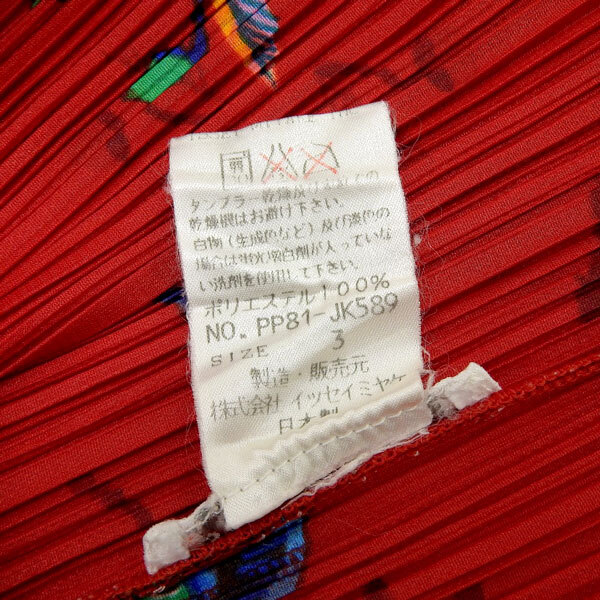 タンブラー乾燥及び
乾燥機はお避け下さい。
白物(生成色など)及び淡色の
場合は蛍光増白剤が入っていな
い洗剤を使用して下さい。
ポリエステル100%
NO. PP81-JK589
SIZE 3
製造・販売元
株式会社イッセイミヤケ
日本製